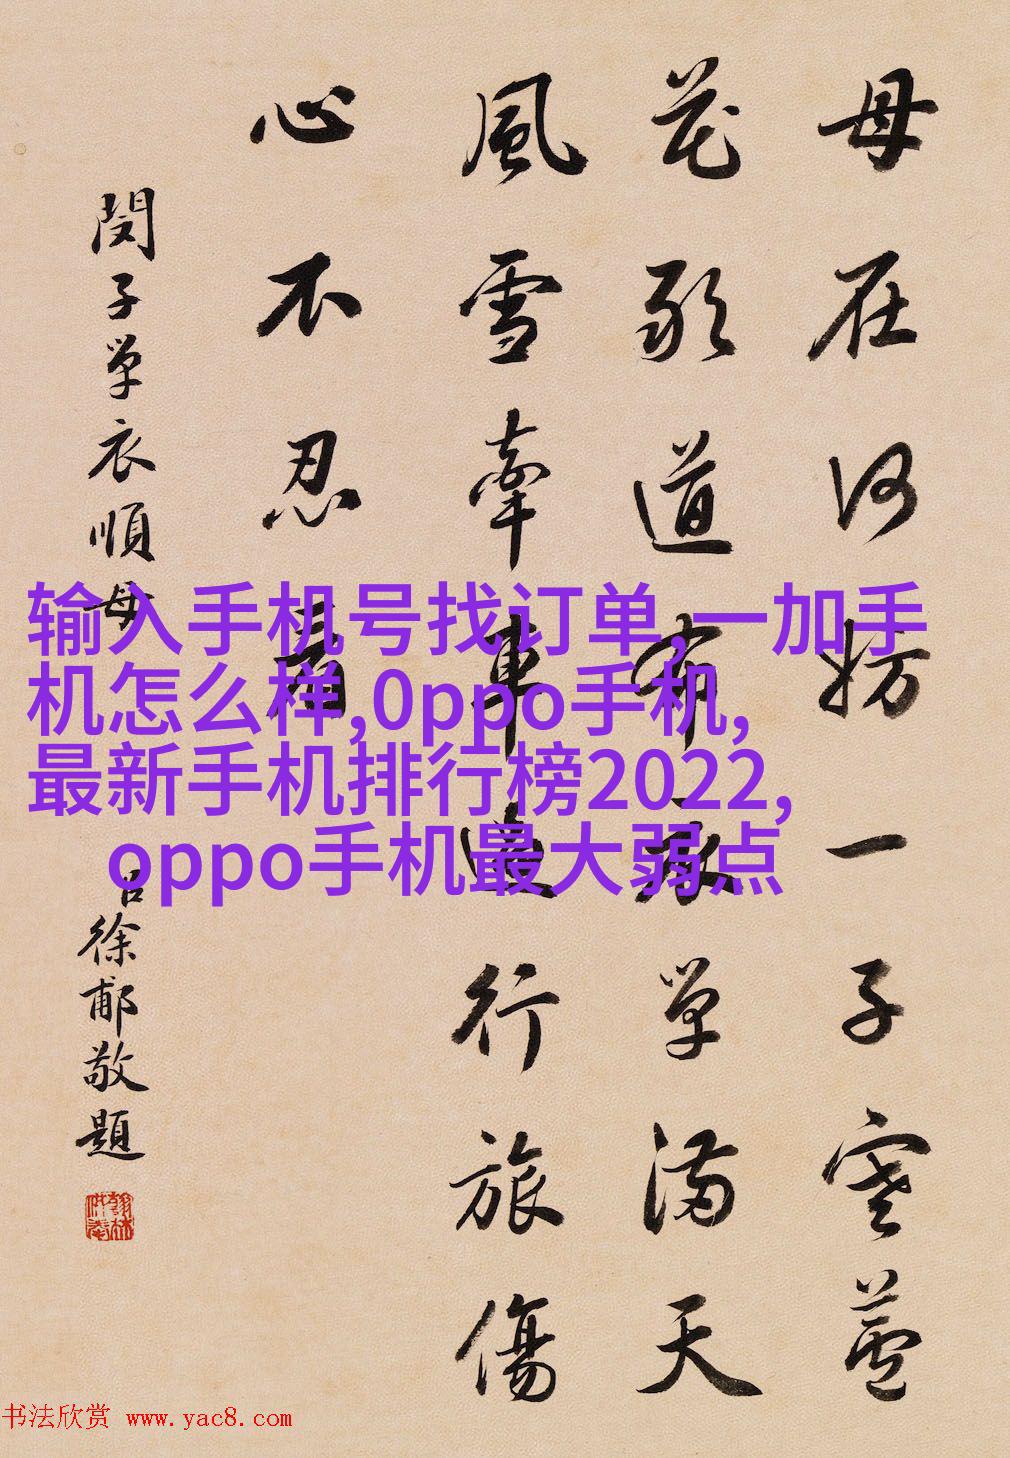 母在何妨一子寒蘆
花歌道有單滿天
風雪牽車行旅傷
心不忍看
閔子單衣順母
徐郙敬題
输入手机号找订单,一加手
机怎么样,0ppo手机,
最新手机排行榜2022,
oppo手机最大弱点
书法欣赏 www.yac8.com